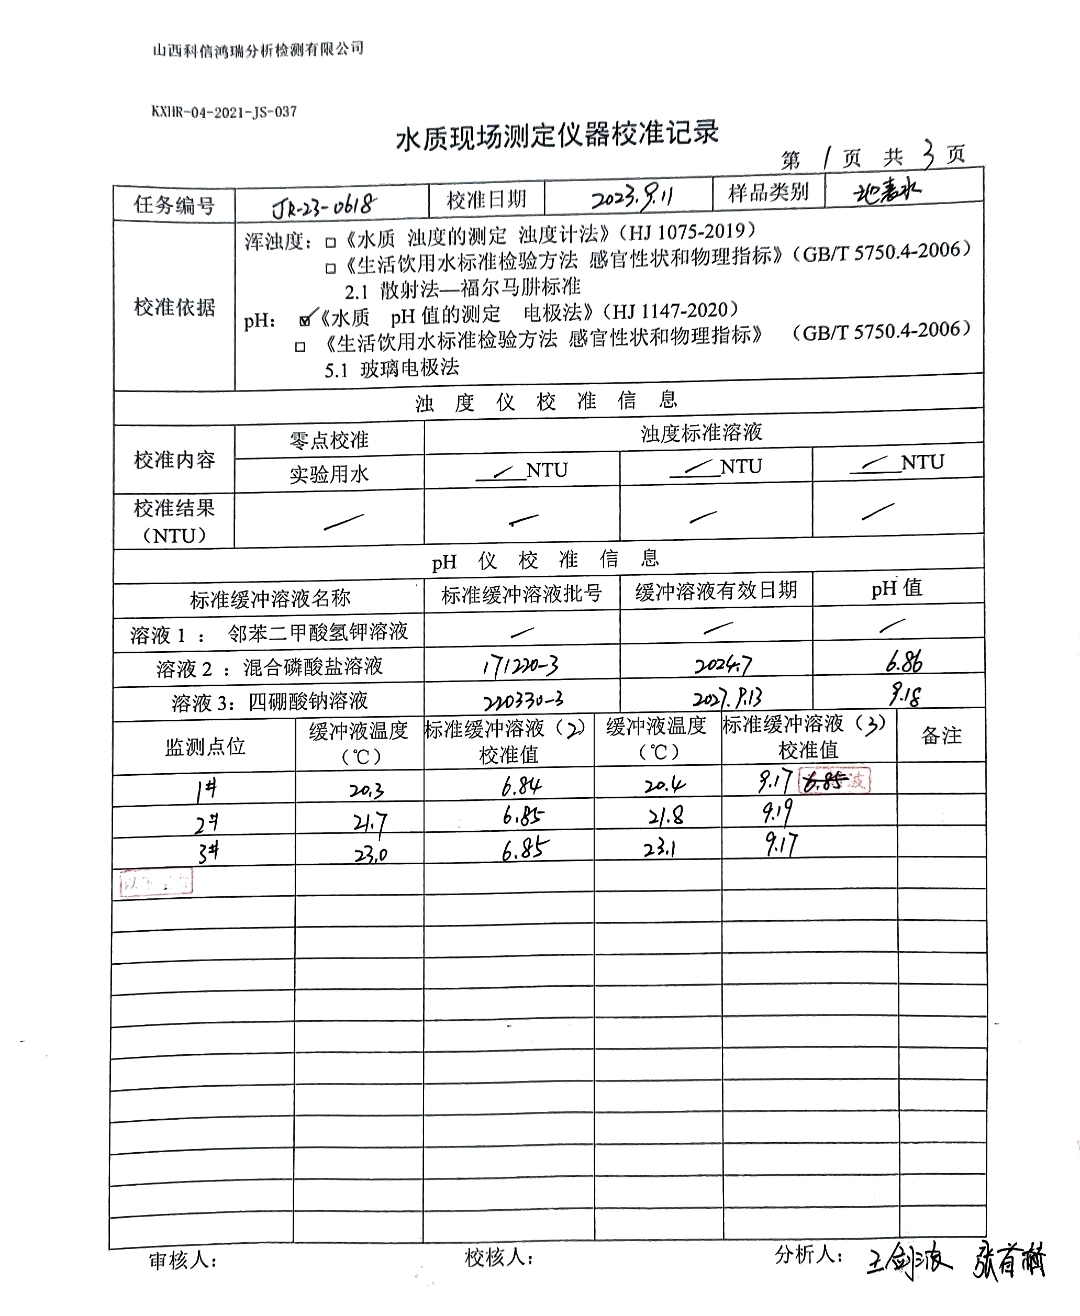 山西科信鸿瑞分析检测有限公司
KXHR-04-2021-JS-037
水质现场测定仪器校准记录
第 1 页 共 3 页
任务编号 JR-23-0618 校准日期 2023.9.11 样品类别 地表水
校准依据
浑浊度：□《水质 浊度的测定 浊度计法》（HJ 1075-2019）
□《生活饮用水标准检验方法 感官性状和物理指标》（GB/T 5750.4-2006）
2.1 散射法—福尔马肼标准
pH： ☑《水质 pH值的测定 电极法》（HJ 1147-2020）
□ 《生活饮用水标准检验方法 感官性状和物理指标》 （GB/T 5750.4-2006）
5.1 玻璃电极法
浊 度 仪 校 准 信 息
校准内容 零点校准 浊度标准溶液
实验用水 / NTU / NTU / NTU
校准结果（NTU） / / / /
pH 仪 校 准 信 息
标准缓冲溶液名称 标准缓冲溶液批号 缓冲溶液有效日期 pH 值
溶液 1 ： 邻苯二甲酸氢钾溶液 / / /
溶液 2 ：混合磷酸盐溶液 171220-3 2024.7 6.86
溶液 3：四硼酸钠溶液 220330-3 2027.9.13 9.18
监测点位 缓冲液温度（℃） 标准缓冲溶液（2）校准值 缓冲液温度（℃） 标准缓冲溶液（3）校准值 备注
1# 20.3 6.84 20.4 9.17 6.85
2# 21.7 6.85 21.8 9.19
3# 23.0 6.85 23.1 9.17
审核人： 校核人： 分析人： 王剑波